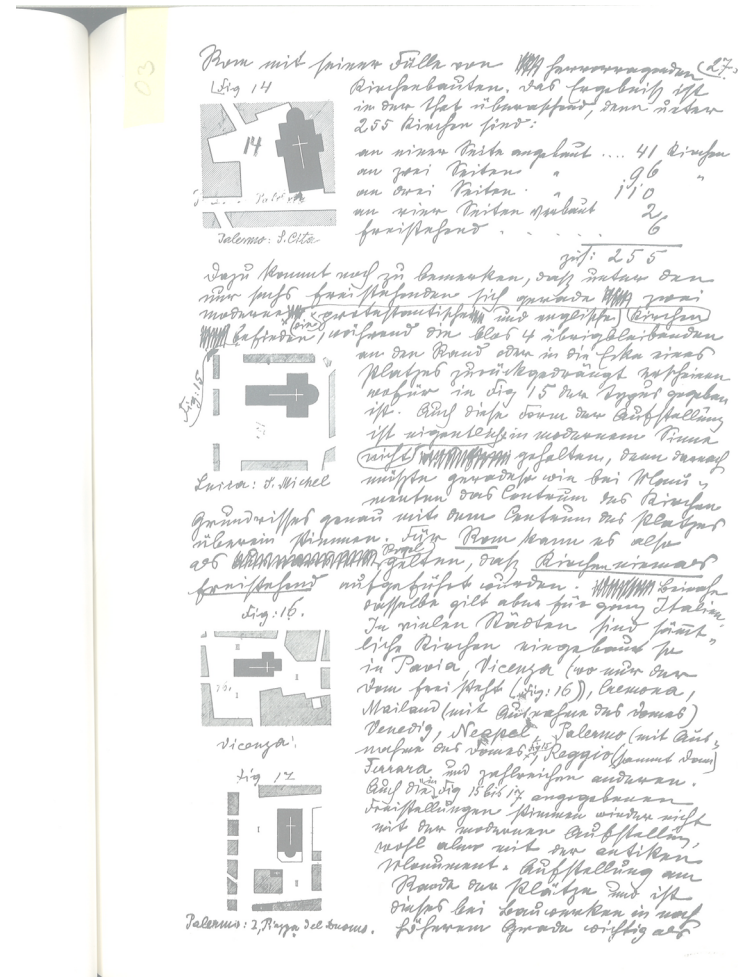 03
27.
Rom mit seiner Fülle von hervorragenden
Fig 14
Kirchenbauten. Das Ergebniß ist
in der That überraschend, denn unter
255 Kirchen sind:
14
an einer Seite angebaut .... 41 Kirchen
an zwei Seiten " 96 "
an drei Seiten " 110
an vier Seiten verbaut 2
freistehend . . . . . . 6
Palermo: S. Cita
zus: 255
Dazu kommt noch zu bemerken, daß unter den
nur sechs freistehenden sich gerade zwei
moderne protestantische und englische Kirchen
befinden, während die blos 4 übrigbleibenden
an den Rand oder in die Ecke eines
Fig: 15
Platzes zurückgedrängt erscheinen
wofür in Fig 15 der Typus gegeben
ist. Auch diese Form der Aufstellung
ist eigentlich in modernem Sinne
nicht gehalten, denn darnach
Lucca: S. Michel
müßte geradeso wie bei Monu-
menten das Centrum des Kirchen
Grundrisses genau mit dem Centrum des Platzes
überein stimmen. Für Rom kann es also
als Regel gelten, daß Kirchen niemals
freistehend aufgeführt wurden. Beinahe
dasselbe gilt aber für ganz Italien.
Fig: 16.
In vielen Städten sind sämmt-
liche Kirchen eingebaut so
in Pavia, Vicenza (wo nur der
Dom frei steht (Fig: 16)), Cremona,
Mailand (mit Ausnahme des Domes)
Vicenza:
Venedig, Neapel, Palermo (mit Aus-
nahme des Domes Fig 17), Reggio (sammt Dom)
Fig 17
Ferrara und zahlreichen anderen.
Auch die in Fig 15 bis 17 angegebenen
Freistellungen stimmen wieder nicht
mit der modernen Aufstellung,
wohl aber mit der antiken
Monument-Aufstellung am
Rande der Plätze und ist
dieses bei Bauwerken in noch
Palermo: I, Piazza del Duomo.
höherem Grade wichtig als